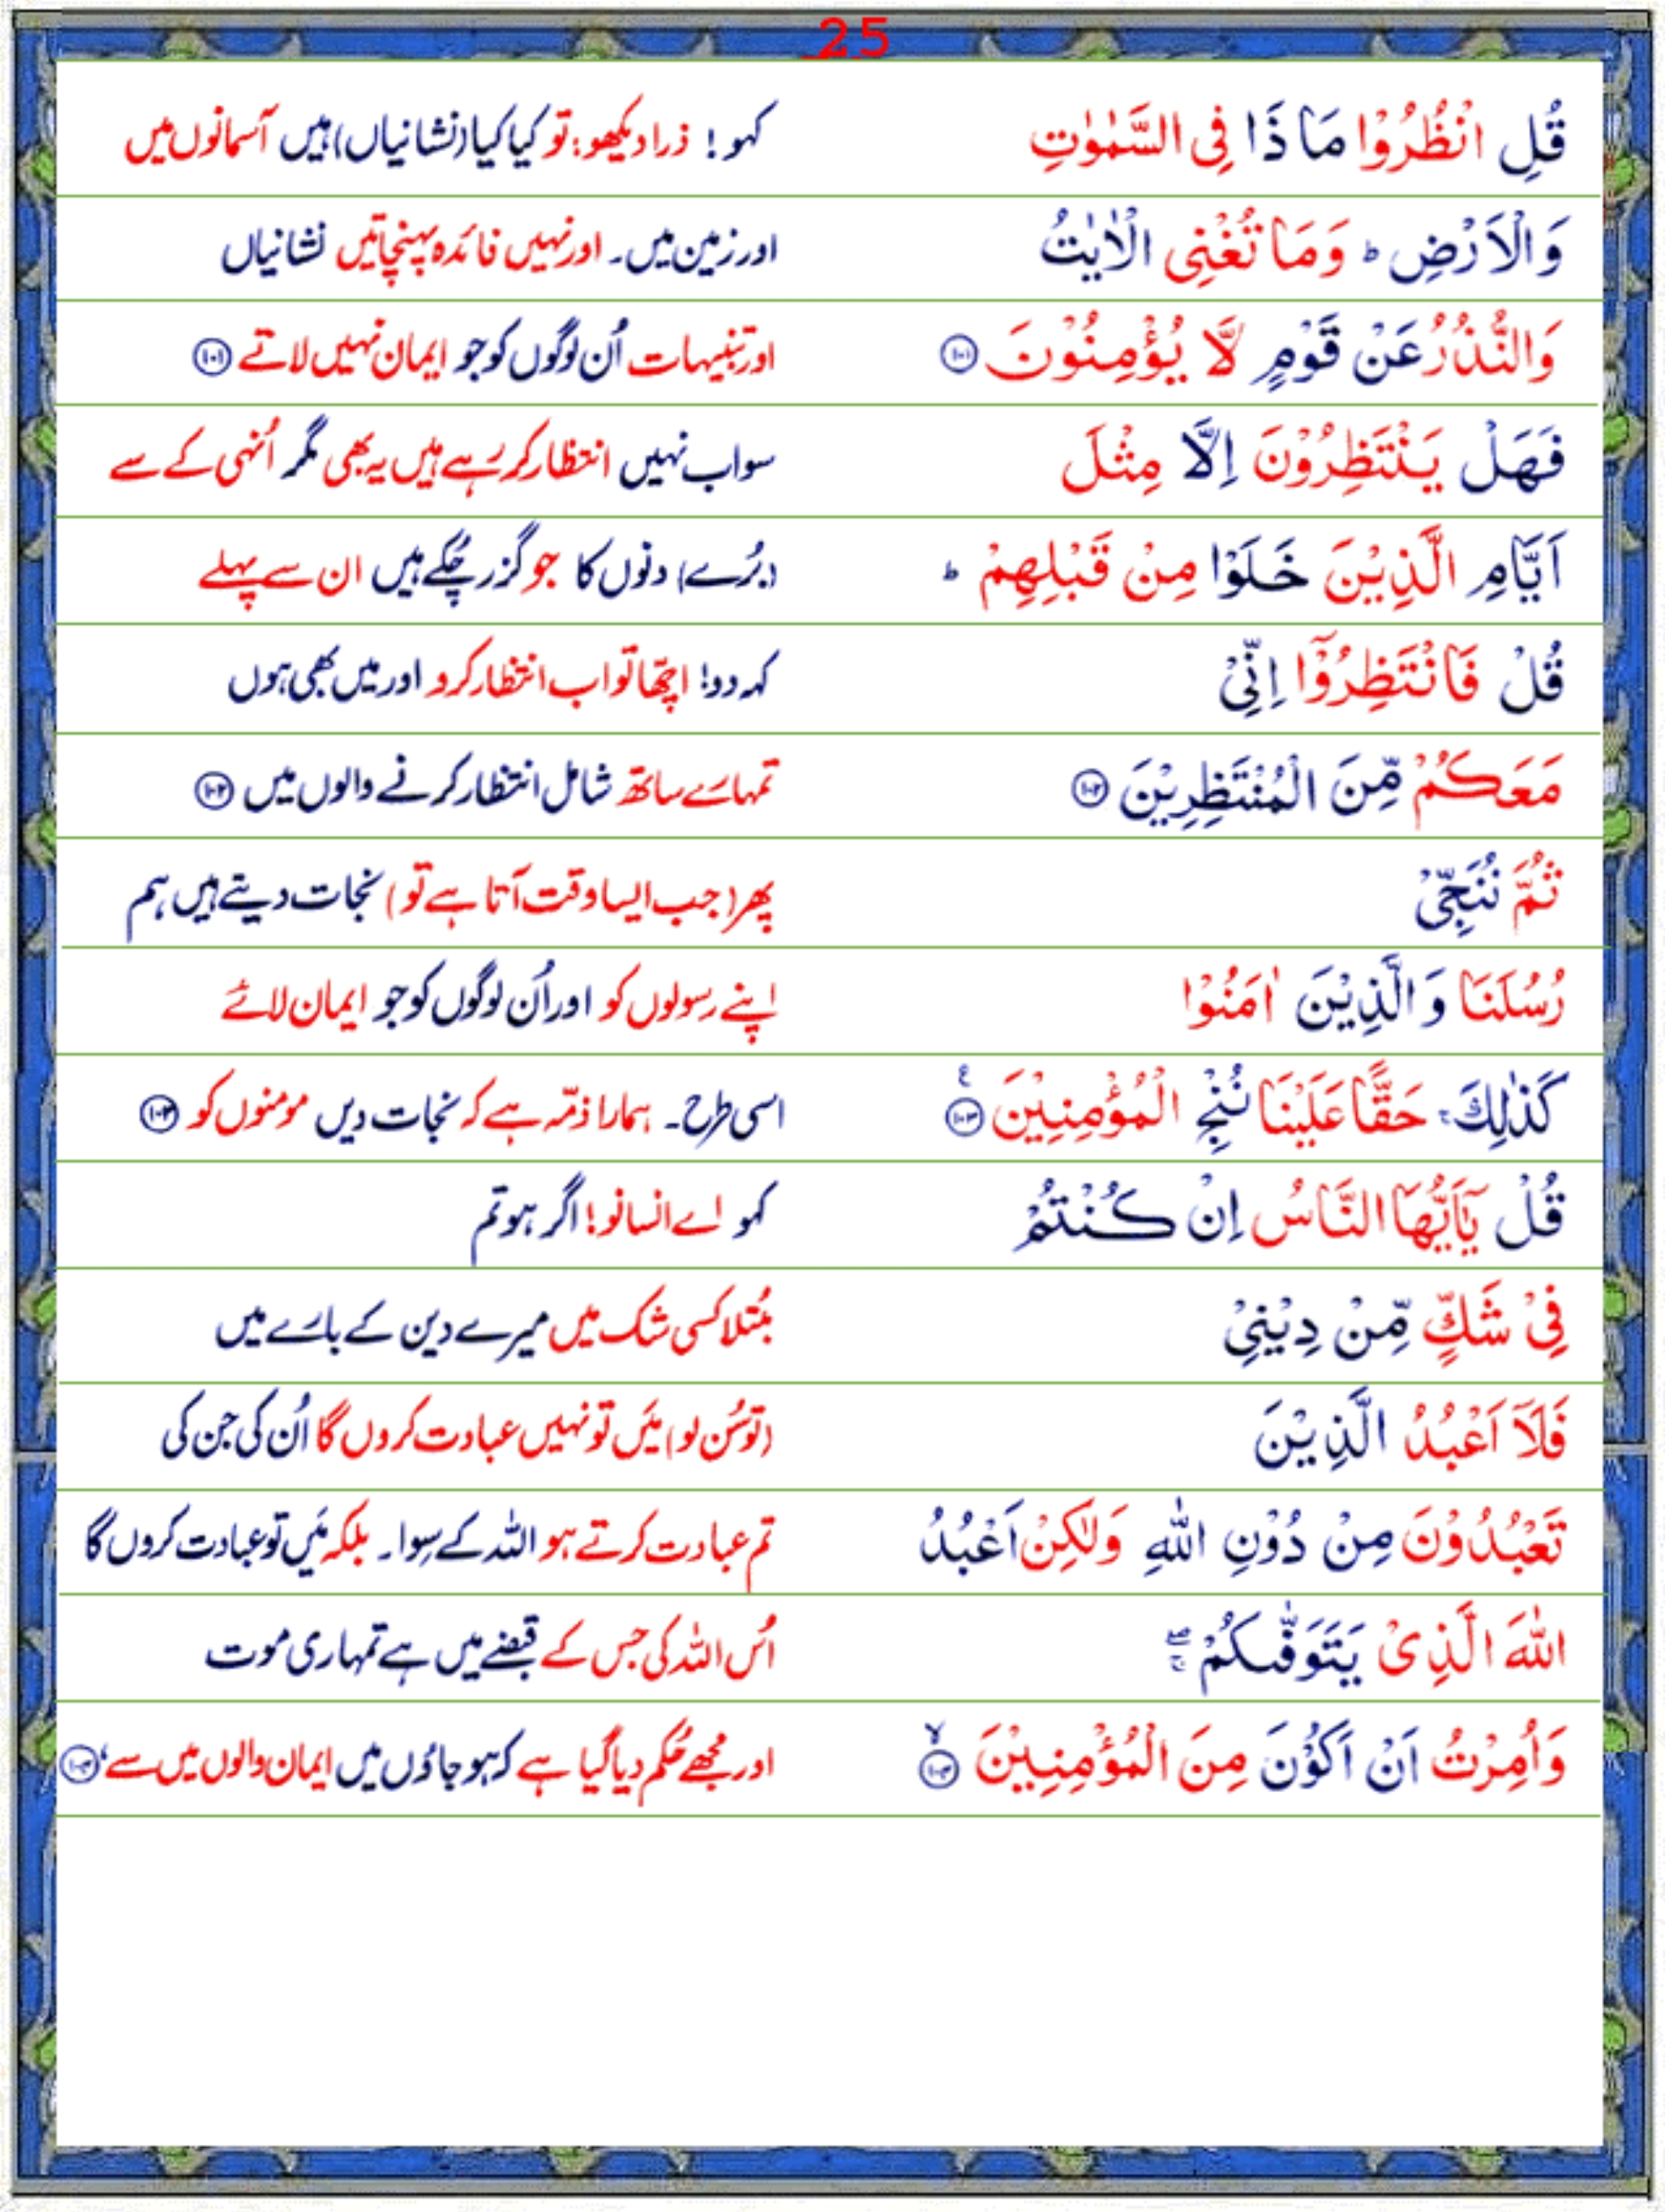 25
قُلِ انْظُرُوْا مَا ذَا فِی السَّمٰوٰتِ کہو! ذرا دیکھو؛ تو کیا کیا (نشانیاں) ہیں آسمانوں میں
وَالْاَرْضِ ؕ وَمَا تُغْنِی الْاٰیٰتُ اور زمین میں۔ اور نہیں فائدہ پہنچاتیں نشانیاں
وَالنُّذُرُ عَنْ قَوْمٍ لَّا یُؤْمِنُوْنَ ﴿۱۰۱﴾ اور تنبیہات اُن لوگوں کو جو ایمان نہیں لاتے ﴿۱۰۱﴾
فَهَلْ یَنْتَظِرُوْنَ اِلَّا مِثْلَ سو اب نہیں انتظار کر رہے ہیں یہ بھی مگر اُنہی کے سے
اَیَّامِ الَّذِیْنَ خَلَوْا مِنْ قَبْلِهِمْ ؕ (بُرے) دنوں کا جو گزر چُکے ہیں ان سے پہلے
قُلْ فَانْتَظِرُوْۤا اِنِّیْ کہہ دو! اچّھا تو اب انتظار کرو اور میں بھی ہوں
مَعَكُمْ مِّنَ الْمُنْتَظِرِیْنَ ﴿۱۰۲﴾ تمہارے ساتھ شامل انتظار کرنے والوں میں ﴿۱۰۲﴾
ثُمَّ نُنَجِّیْ پھر (جب ایسا وقت آتا ہے تو) نجات دیتے ہیں ہم
رُسُلَنَا وَالَّذِیْنَ اٰمَنُوْا اپنے رسولوں کو اور اُن لوگوں کو جو ایمان لائے
كَذٰلِكَ ۚ حَقًّا عَلَیْنَا نُنْجِ الْمُؤْمِنِیْنَ ﴿۱۰۳﴾ ع اسی طرح۔ ہمارا ذمّہ ہے کہ نجات دیں مومنوں کو ﴿۱۰۳﴾
قُلْ یٰۤاَیُّهَا النَّاسُ اِنْ كُنْتُمْ کہو اے انسانو! اگر ہو تم
فِیْ شَكٍّ مِّنْ دِیْنِیْ مُبتلا کسی شک میں میرے دین کے بارے میں
فَلَاۤ اَعْبُدُ الَّذِیْنَ (تو سُن لو) مَیں تو نہیں عبادت کروں گا اُن کی جن کی
تَعْبُدُوْنَ مِنْ دُوْنِ اللّٰهِ وَلٰكِنْ اَعْبُدُ تم عبادت کرتے ہو اللہ کے سِوا۔ بلکہ مَیں تو عبادت کروں گا
اللّٰهَ الَّذِیْ یَتَوَفّٰىكُمْ ۖۚ اُس اللہ کی جس کے قبضے میں ہے تمہاری موت
وَاُمِرْتُ اَنْ اَكُوْنَ مِنَ الْمُؤْمِنِیْنَ ۙ﴿۱۰۴﴾ اور مجھے حُکم دیا گیا ہے کہ ہو جاؤں میں ایمان والوں میں سے، ﴿۱۰۴﴾